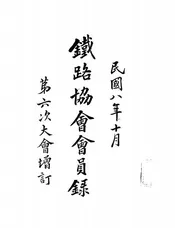 民國八年十月
鐵路協會會員錄
第六次大會增訂